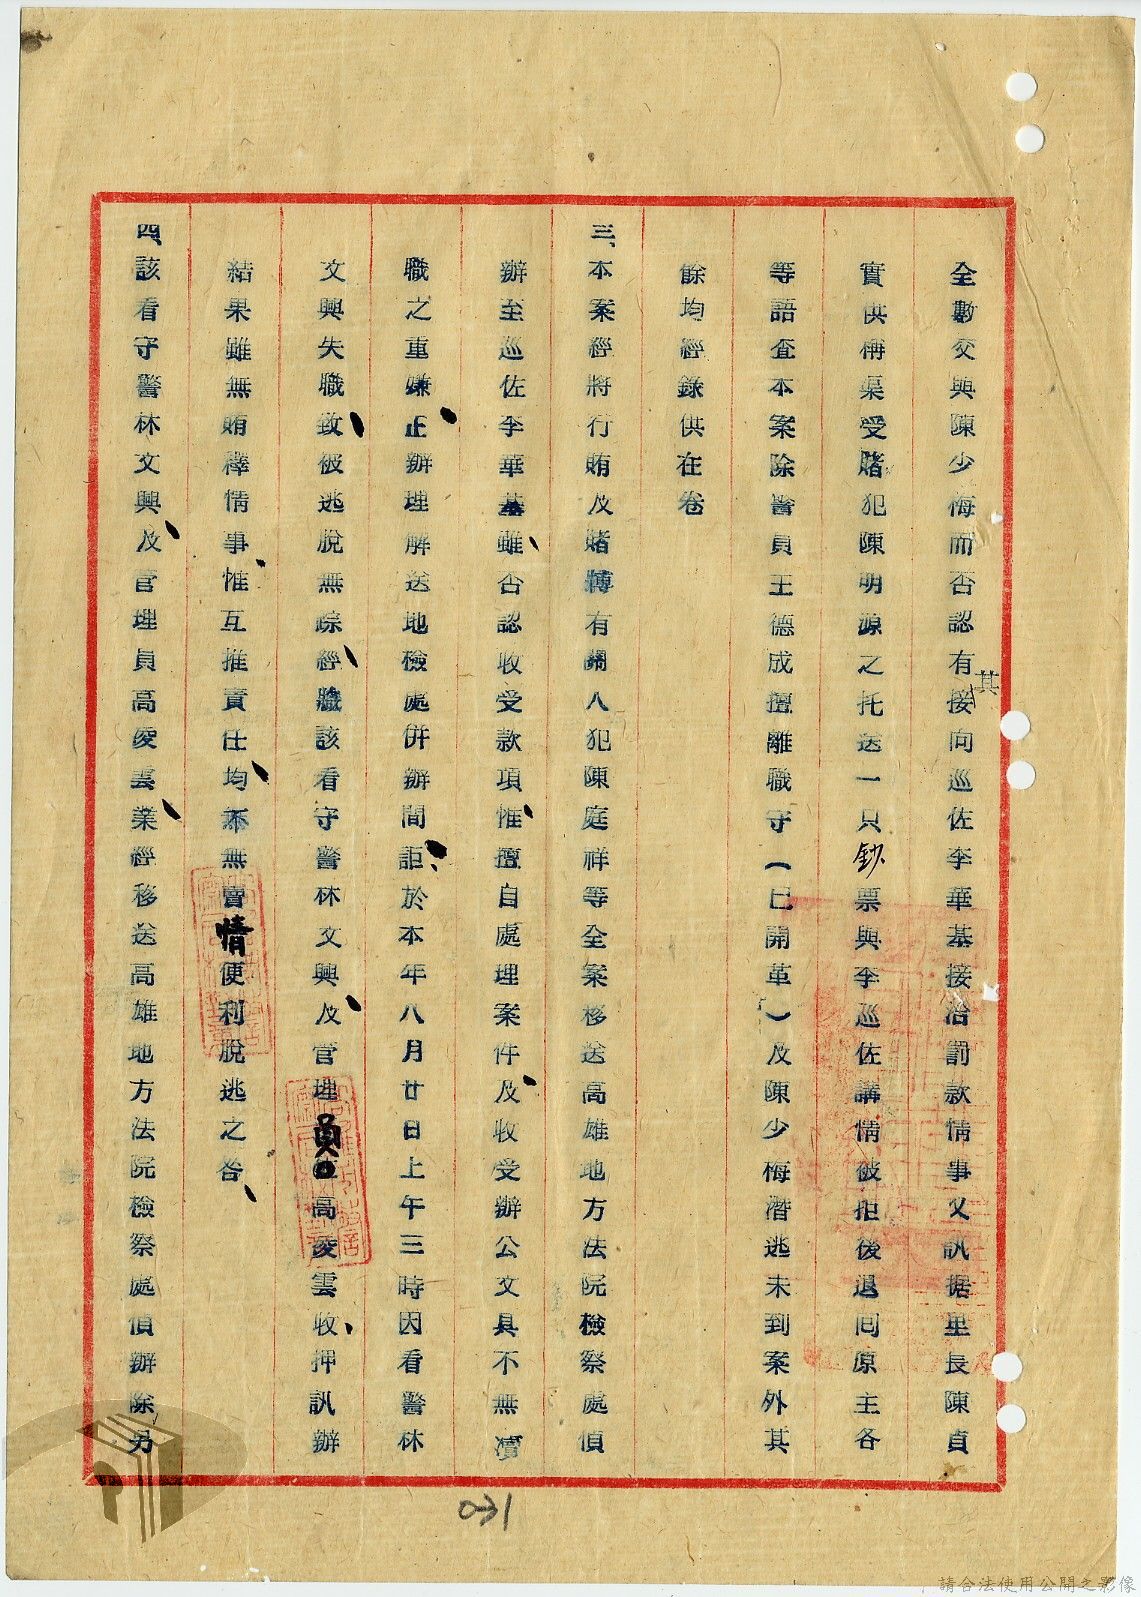 全數交與陳少梅而否認有其接向巡佐李華基接洽罰款情事又訊据里長陳貞
實供稱渠受賭犯陳明源之托送一只鈔票與李巡佐講情被拒後退囘原主各
等語查本案除警員王德成擅離職守(已開革)及陳少梅潛逃未到案外其
餘均經錄供在卷
三、本案經將行賄及賭博有關人犯陳庭祥等全案移送高雄地方法院檢察處偵
辦至巡佐李華基雖否認收受款項惟擅自處理案件及收受辦公文具不無瀆
職之重嫌正辦理解送地檢處併辦間詎於本年八月廿日上午三時因看警林
文興失職致被逃脫無踪經職該看守警林文興及管理員高夌雲收押訊辦
結果雖無賄釋情事惟互推責任均不無賣情便利脫逃之咎
四、該看守警林文興及管理員高夌雲業經移送高雄地方法院檢察處偵辦除另
031
請合法使用公開之影像